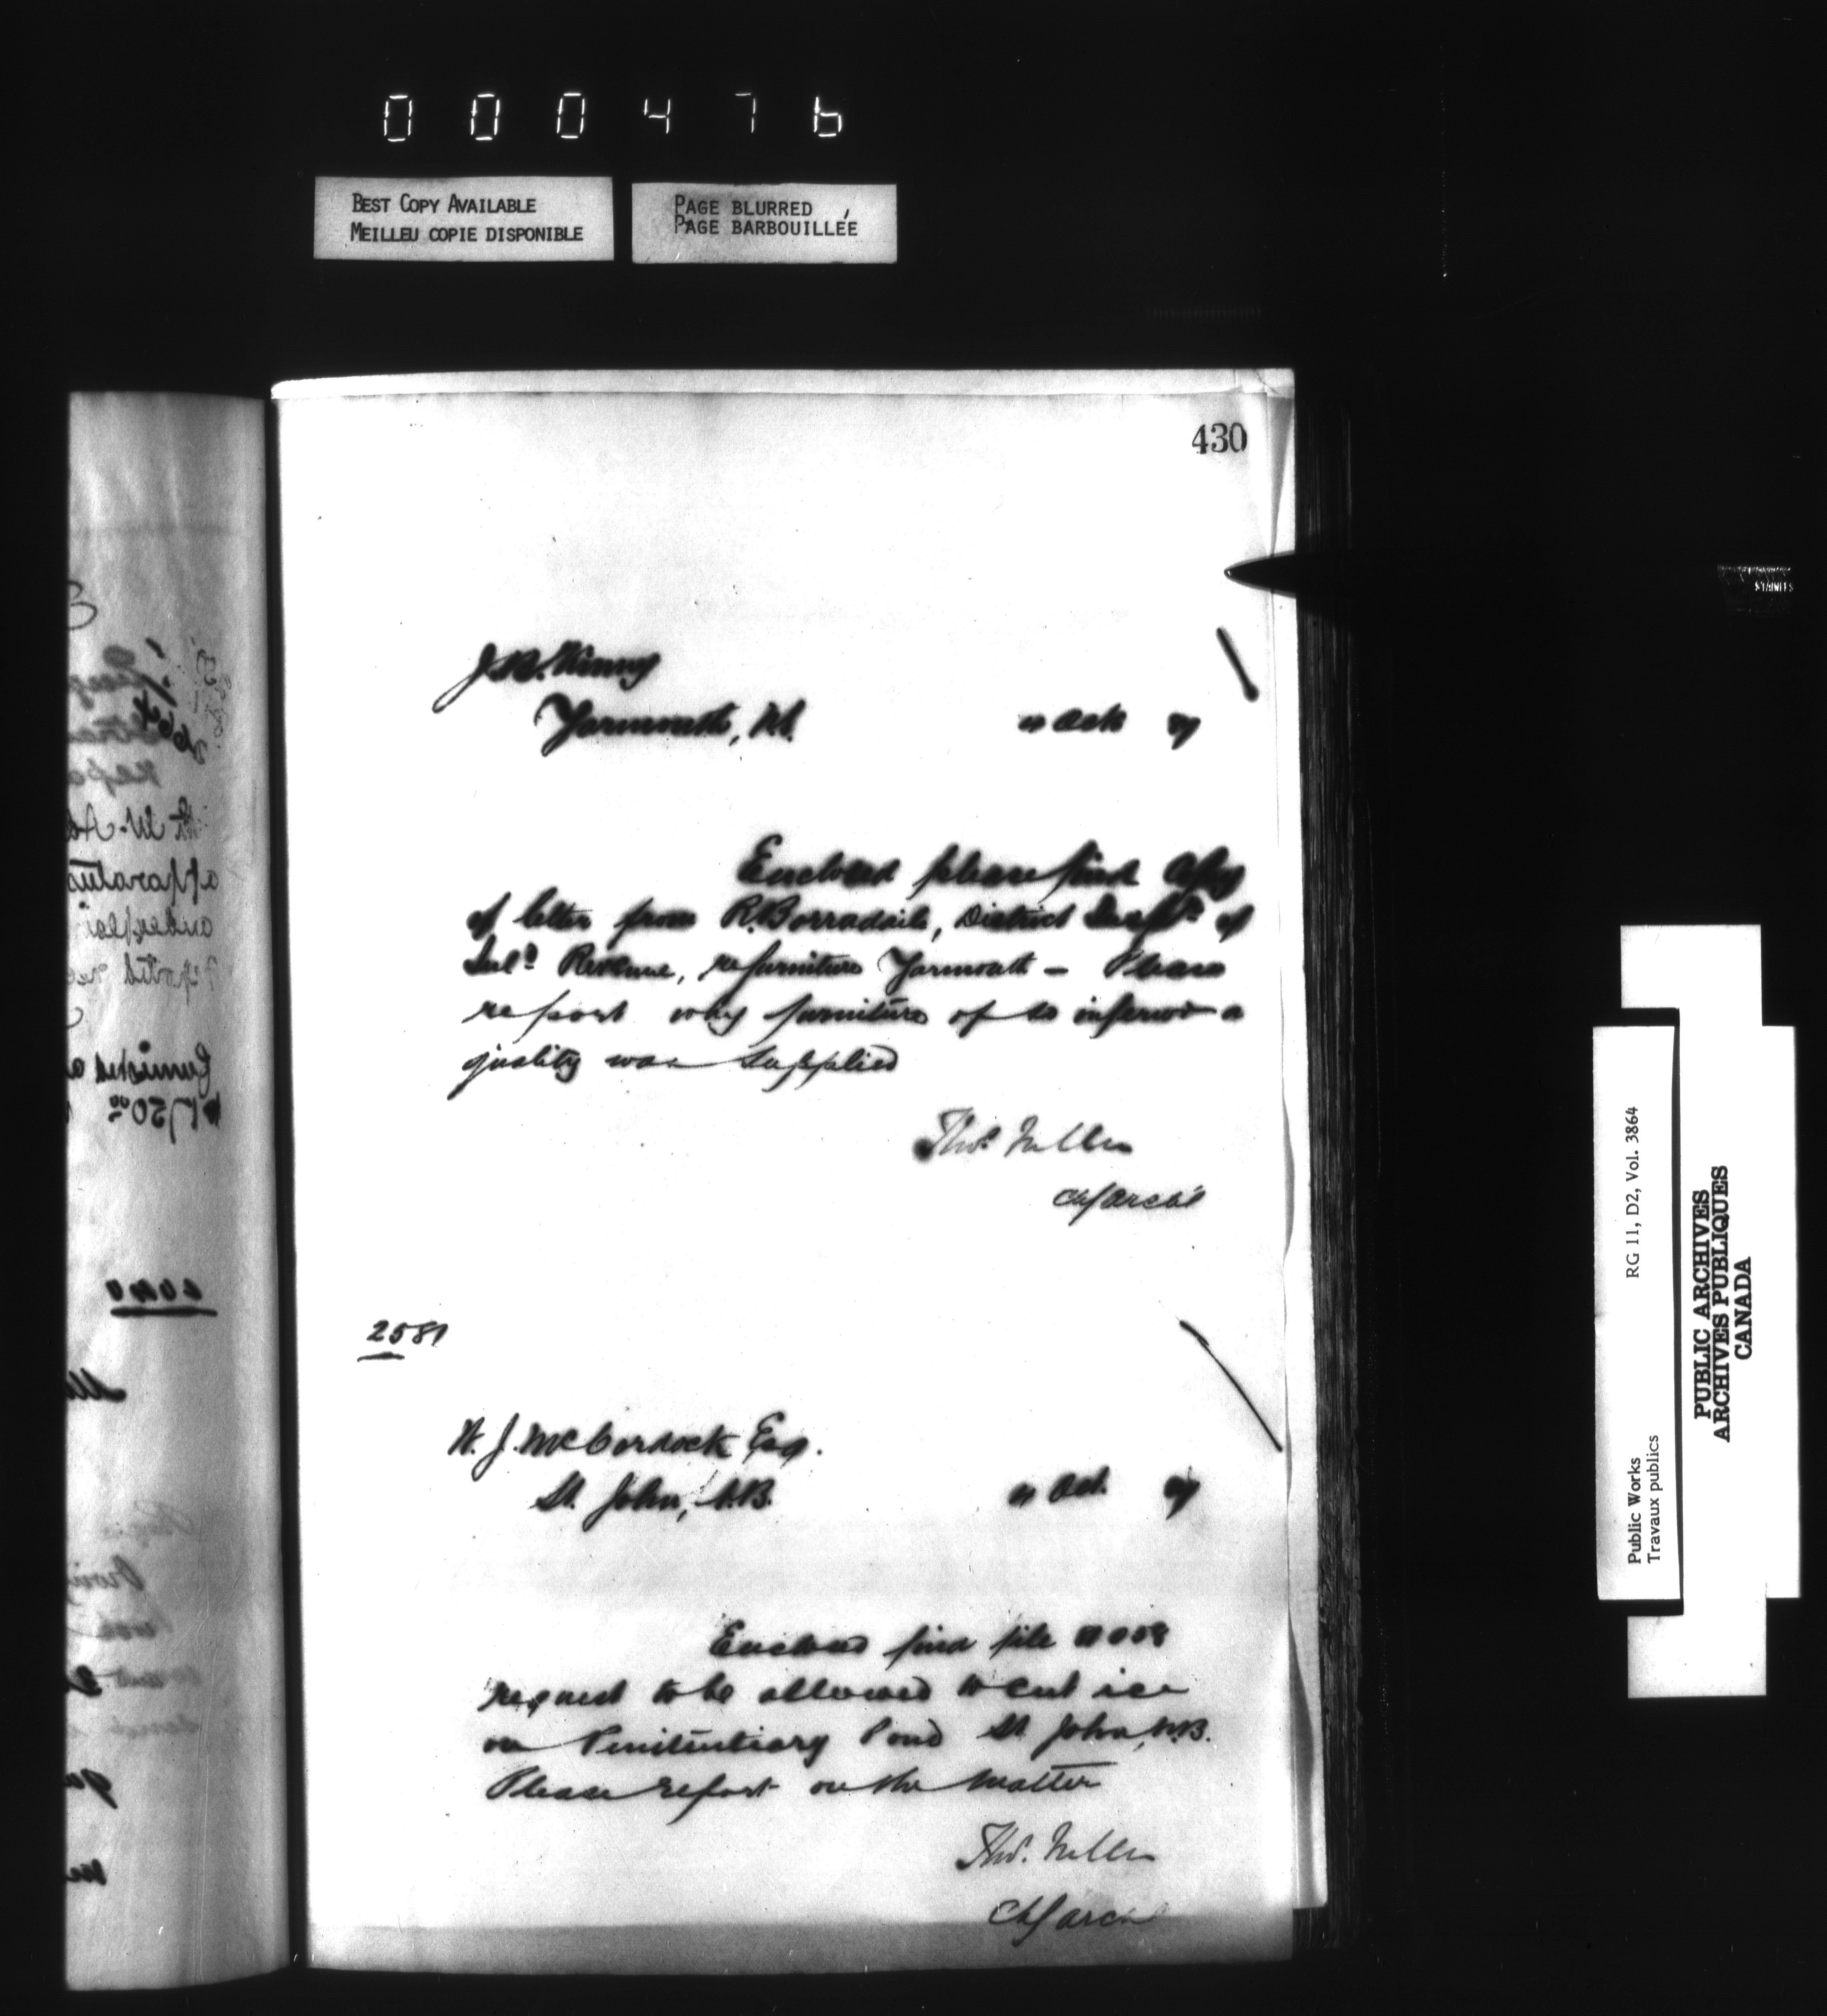 000476
BEST COPY AVAILABLE
MEILLEU COPIE DISPONIBLE
PAGE BLURRED
PAGE BARBOUILLÉE
430
J.B. Kinney
Yarmouth, N.S.
Enclosed please find copy
of letter from R. Borradaile, District Inspr of
Inld Revenue, re furniture Yarmouth - Please
report why furniture of so inferior a
quality was supplied
Thos Fuller
Chf Archt
2581
H. J. McCordock Esq.
St. John, N.B. Oct.
Enclosed find file
request to be allowed to cut ice
on Penitentiary Pond St. John, N.B.
Please report on the matter
Thos. Fuller
Chf Archt
Public Works
Travaux publics
RG 11, D2, Vol. 3864
PUBLIC ARCHIVES
ARCHIVES PUBLIQUES
CANADA